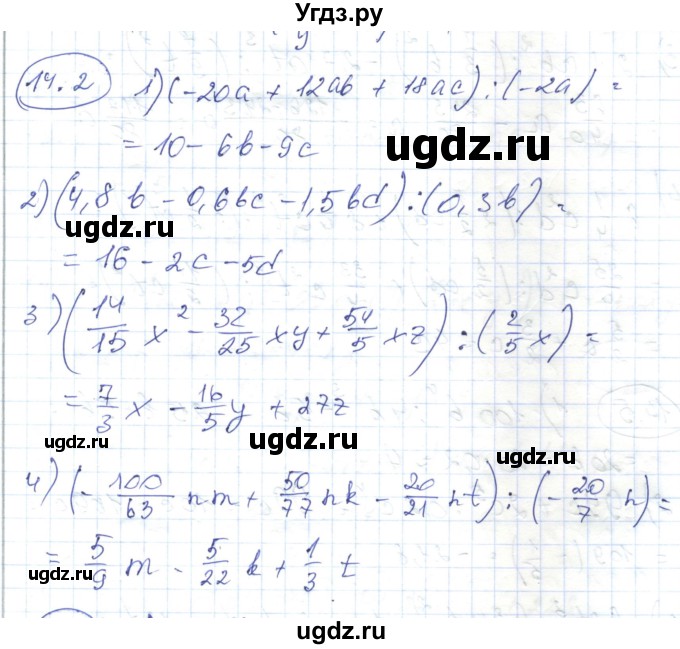 Угдз.ру
14.2 1) (-20a + 12ab + 18ac) : (-2a) =
= 10 - 6b - 9c
ugdz.ru
2) (4,8b - 0,6bc - 1,5bd) : (0,3b) =
ugdz.ru
ugdz.ru
= 16 - 2c - 5d
3) (14/15 x² - 32/25 xy + 54/5 xz) : (2/5 x) =
= 7/3 x - 16/5 y + 27z
ugdz.ru
ugdz.ru
ugdz.ru
4) (- 100/63 nm + 50/77 nk - 20/21 nt) : (- 20/7 n) =
= 5/9 m - 5/22 k + 1/3 t
ugdz.ru
ugdz.ru
ugdz.ru